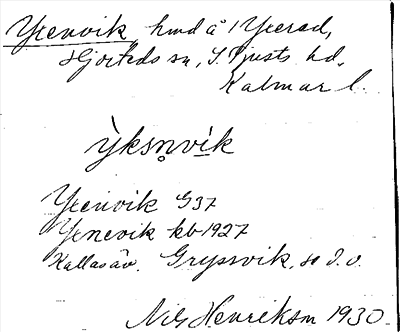 Yxenvik, hmd å 1 Yxered,
Hjorteds sn, S. Tjusts hd,
Kalmar l.
ỳksn̥vík
Yxenvik G37
Yxnevik kb 1927
Kallas äv. Grynsvik, se d. o.
Nils Henriksm 1930.